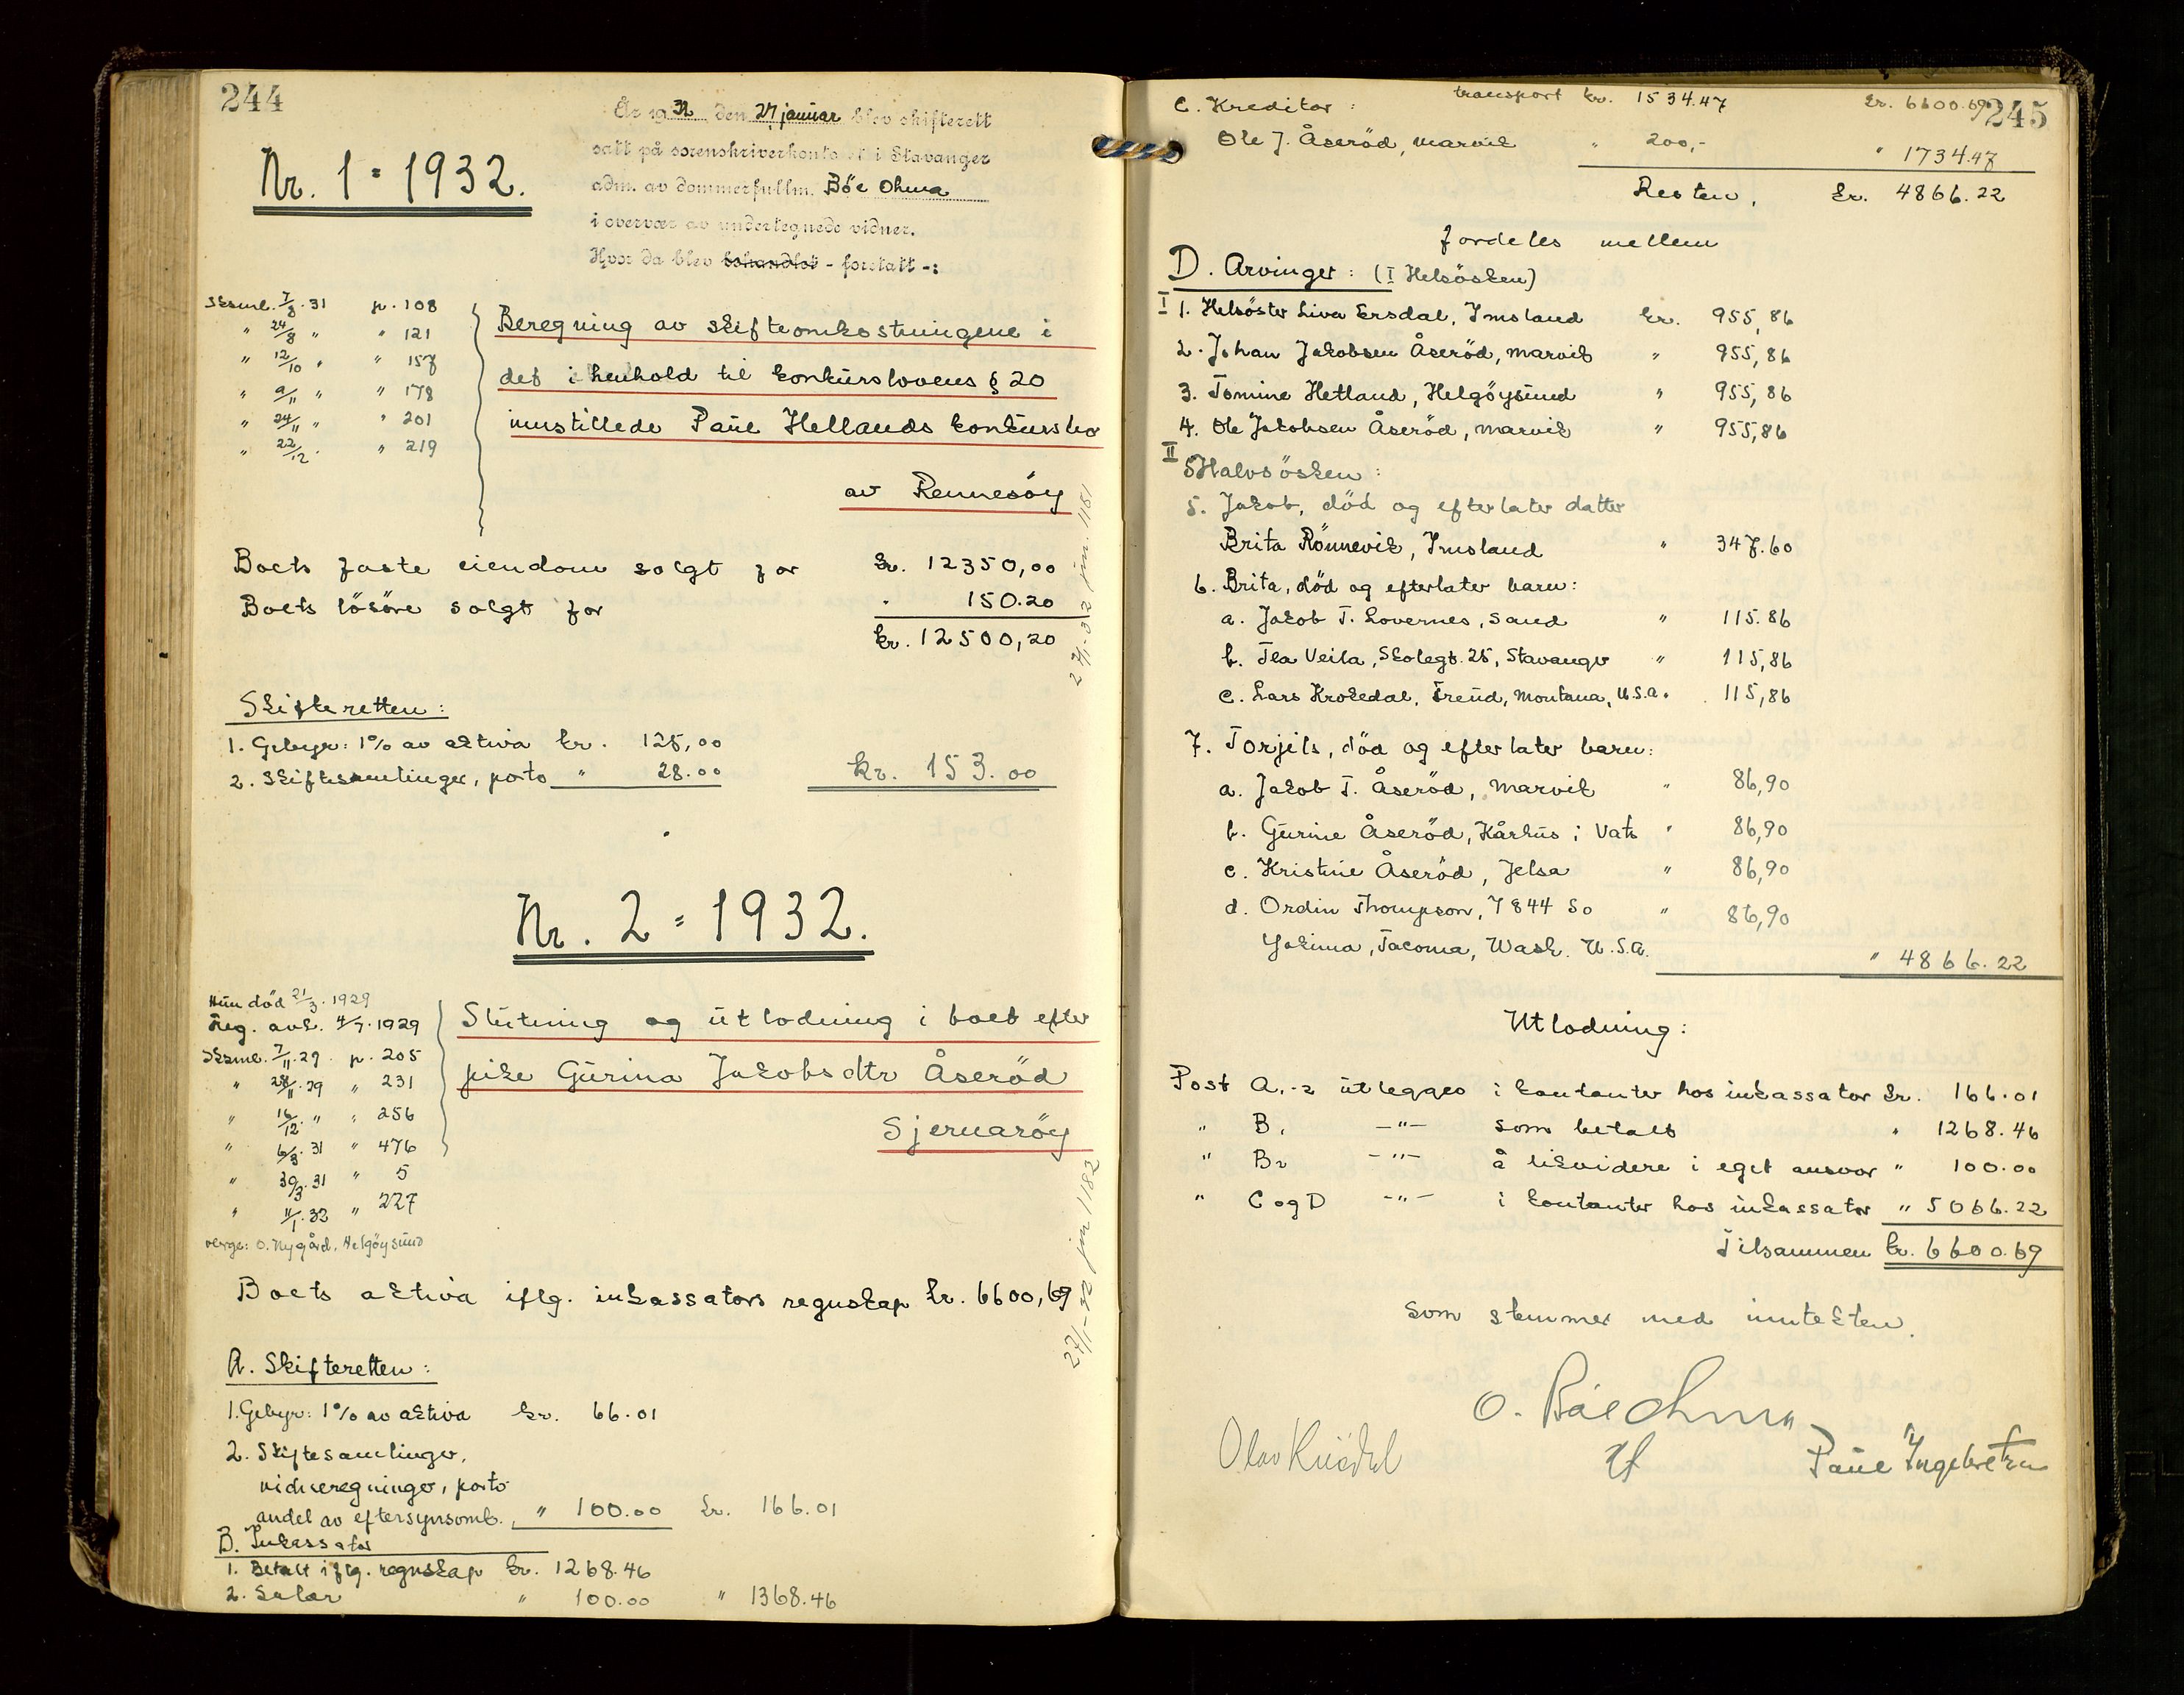 244
År 1932 den 27 januar blev skifterett
satt på sorenskriverkontoret i Stavanger
adm. av dommerfullm. Böe Ohma
i overvær av undertegnede vidner.
Hvor da blev behandlet - foretatt -:
Nr. 1 = 1932.
Sksml. 7/8. 31 p. 108
" 24/8 " " 121
" 12/10 " " 157
" 9/11 " " 178
" 24/11 " " 201
" 22/12. " 219
Beregning av skifteomkostningene i
det i henhold til konkurslovens § 20
innstillede Paul Hellands konkursbo
av Rennesöy
27/1-32 jnr. 1181
Boets faste eiendom solgt for kr. 12350,00
Boets lösöre solgt for " 150.20
kr. 12500,20
Skifteretten:
1. Gebyr: 1% av aktiva kr. 125,00
2. Skiftesamlinger, porto " 28.00 kr. 153.00
Nr. 2 = 1932.
Hun död 21/3. 1929
Reg. avh. 4/7. 1929
Sksml. 7/11. 29 p. 205
" 28/11. 29 " 231
" 16/12. " " 256
" 6/3. 31 " 476
" 30/3. 31 " 5
" 11/1. 32 " 227
verge: O. Nygård, Helgöysund
Slutning og utlodning i boet efter
pike Gurina Jakobsdtr Åseröd
Sjernaröy
27/1-32 jnr 1182
Boets aktiva iflg. inkassators regnskap kr. 6600,69
A. Skifteretten:
1. Gebyr: 1% av aktiva kr. 66.01
2. Skiftesamlinger,
vidneregninger, porto
andel av eftersynsomk., " 100.00 kr. 166.01
B. Inkassator
1. Betalt iflg. regnskap kr. 1268.46
2. Salær " 100.00 " 1368.46
245
transport kr. 1534.47 kr. 6600.69
C. Kreditor:
Ole J. Åseröd, Marvik " 200,- " 1734.47
Resten, kr. 4866.22
fordeles mellem
D. Arvinger: (I Helsösken)
I 1. Helsöster Liva Ersdal, Imsland kr. 955,86
2. Johan Jakobsen Åseröd, Marvik " 955,86
3. Tomine Hetland, Helgöysund " 955,86
4. Ole Jakobsen Åseröd, Marvik " 955,86
II Halvsösken:
5. Jakob, död og efterlater datter
Brita Rönnevik, Imsland " 347.60
6. Brita, död og efterlater barn:
a. Jakob T. Lovernes, Sand " 115.86
b. Tea Veila, Skolegt. 25, Stavanger " 115,86
c. Lars Krokedal, Freud, Montana, U.S.A. . 115,86
7. Torjils, död og efterlater barn:
a. Jakob T. Åseröd, Marvik " 86,90
b. Gurine Åseröd, Kårhus i Vats " 86,90
c. Kristine Åseröd, Jelsa " 86,90
d. Ordin Thompson, 7844 So " 86,90
Yakima, Tacoma, Wash. U.S.A. " 4866.22
Utlodning:
Post A1-2 utlegges i kontanter hos inkassator kr. 166.01
" B1 -"- som betalt " 1268.46
" B2 -"- å likvidere i eget ansvar " 100.00
" C og D -"- i kontanter hos inkassator " 5066.22
Tilsammen kr. 6600.69
som stemmer med inntekten.
O. Böe Ohma
Olav Kvidal
Paul Ingebretsen